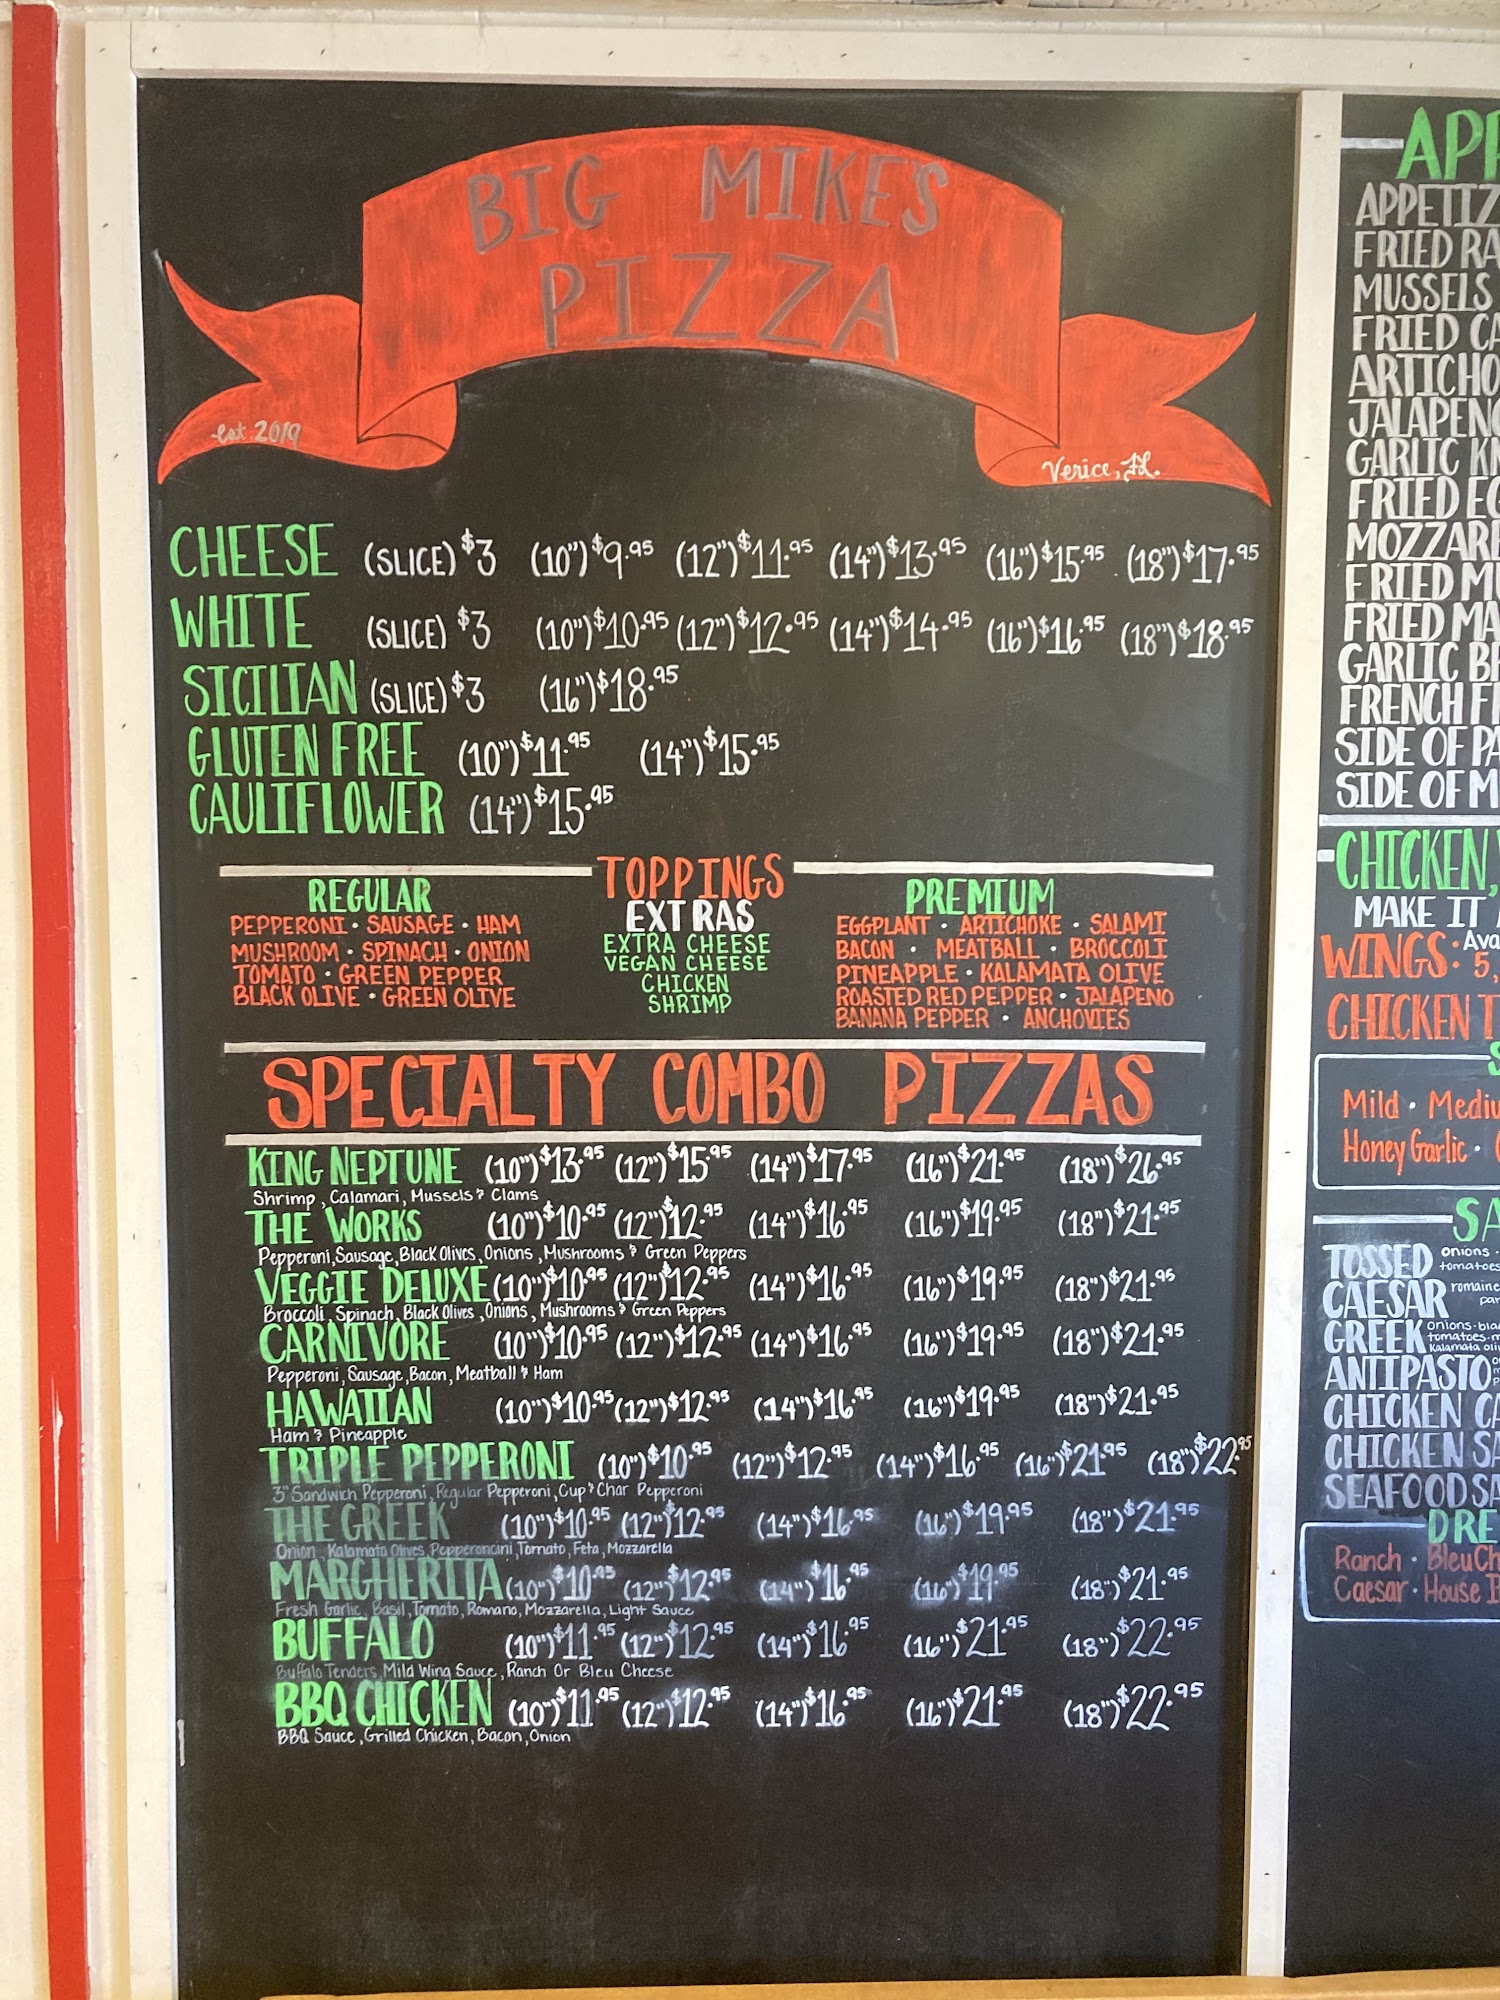 BIG MIKE'S
PIZZA
est. 2019
Venice, FL.
CHEESE (SLICE) $3 (10") $9.95 (12") $11.95 (14") $13.95 (16") $15.95 (18") $17.95
WHITE (SLICE) $3 (10") $10.95 (12") $12.95 (14") $14.95 (16") $16.95 (18") $18.95
SICILIAN (SLICE) $3 (16") $18.95
GLUTEN FREE (10") $11.95 (14") $15.95
CAULIFLOWER (14") $15.95
TOPPINGS
REGULAR
PEPPERONI • SAUSAGE • HAM
MUSHROOM • SPINACH • ONION
TOMATO • GREEN PEPPER
BLACK OLIVE • GREEN OLIVE
EXTRAS
EXTRA CHEESE
VEGAN CHEESE
CHICKEN
SHRIMP
PREMIUM
EGGPLANT • ARTICHOKE • SALAMI
BACON • MEATBALL • BROCCOLI
PINEAPPLE • KALAMATA OLIVE
ROASTED RED PEPPER • JALAPENO
BANANA PEPPER • ANCHOVIES
SPECIALTY COMBO PIZZAS
KING NEPTUNE (10") $13.95 (12") $15.95 (14") $17.95 (16") $21.95 (18") $26.95
Shrimp, Calamari, Mussels & Clams
THE WORKS (10") $10.95 (12") $12.95 (14") $16.95 (16") $19.95 (18") $21.95
Pepperoni, Sausage, Black Olives, Onions, Mushrooms & Green Peppers
VEGGIE DELUXE (10") $10.95 (12") $12.95 (14") $16.95 (16") $19.95 (18") $21.95
Broccoli, Spinach, Black Olives, Onions, Mushrooms & Green Peppers
CARNIVORE (10") $10.95 (12") $12.95 (14") $16.95 (16") $19.95 (18") $21.95
Pepperoni, Sausage, Bacon, Meatball & Ham
HAWAIIAN (10") $10.95 (12") $12.95 (14") $16.95 (16") $19.95 (18") $21.95
Ham & Pineapple
TRIPLE PEPPERONI (10") $10.95 (12") $12.95 (14") $16.95 (16") $21.95 (18") $22.95
3" Sandwich Pepperoni, Regular Pepperoni, Cup & Char Pepperoni
THE GREEK (10") $10.95 (12") $12.95 (14") $16.95 (16") $19.95 (18") $21.95
Onion, Kalamata Olives, Pepperoncini, Tomato, Feta, Mozzarella
MARGHERITA (10") $10.95 (12") $12.95 (14") $16.95 (16") $19.95 (18") $21.95
Fresh Garlic, Basil, Tomato, Romano, Mozzarella, Light Sauce
BUFFALO (10") $11.95 (12") $12.95 (14") $16.95 (16") $21.95 (18") $22.95
Buffalo Tenders, Mild Wing Sauce, Ranch Or Bleu Cheese
BBQ CHICKEN (10") $11.95 (12") $12.95 (14") $16.95 (16") $21.95 (18") $22.95
BBQ Sauce, Grilled Chicken, Bacon, Onion
APP
APPETIZ
FRIED RA
MUSSELS
FRIED CA
ARTICHO
JALAPENO
GARLIC KN
FRIED EG
MOZZARE
FRIED MU
FRIED MA
GARLIC BR
FRENCH FR
SIDE OF PA
SIDE OF M
CHICKEN,
MAKE IT
WINGS: Ava
5,
CHICKEN T
S
Mild • Mediu
Honey Garlic •
SA
TOSSED onions •
tomatoes
CAESAR romaine
par
GREEK onions • bla
tomatoes • m
Kalamata oliv
ANTIPASTO
CHICKEN CA
CHICKEN SA
SEAFOOD SA
DRE
Ranch • Bleu Ch
Caesar • House I